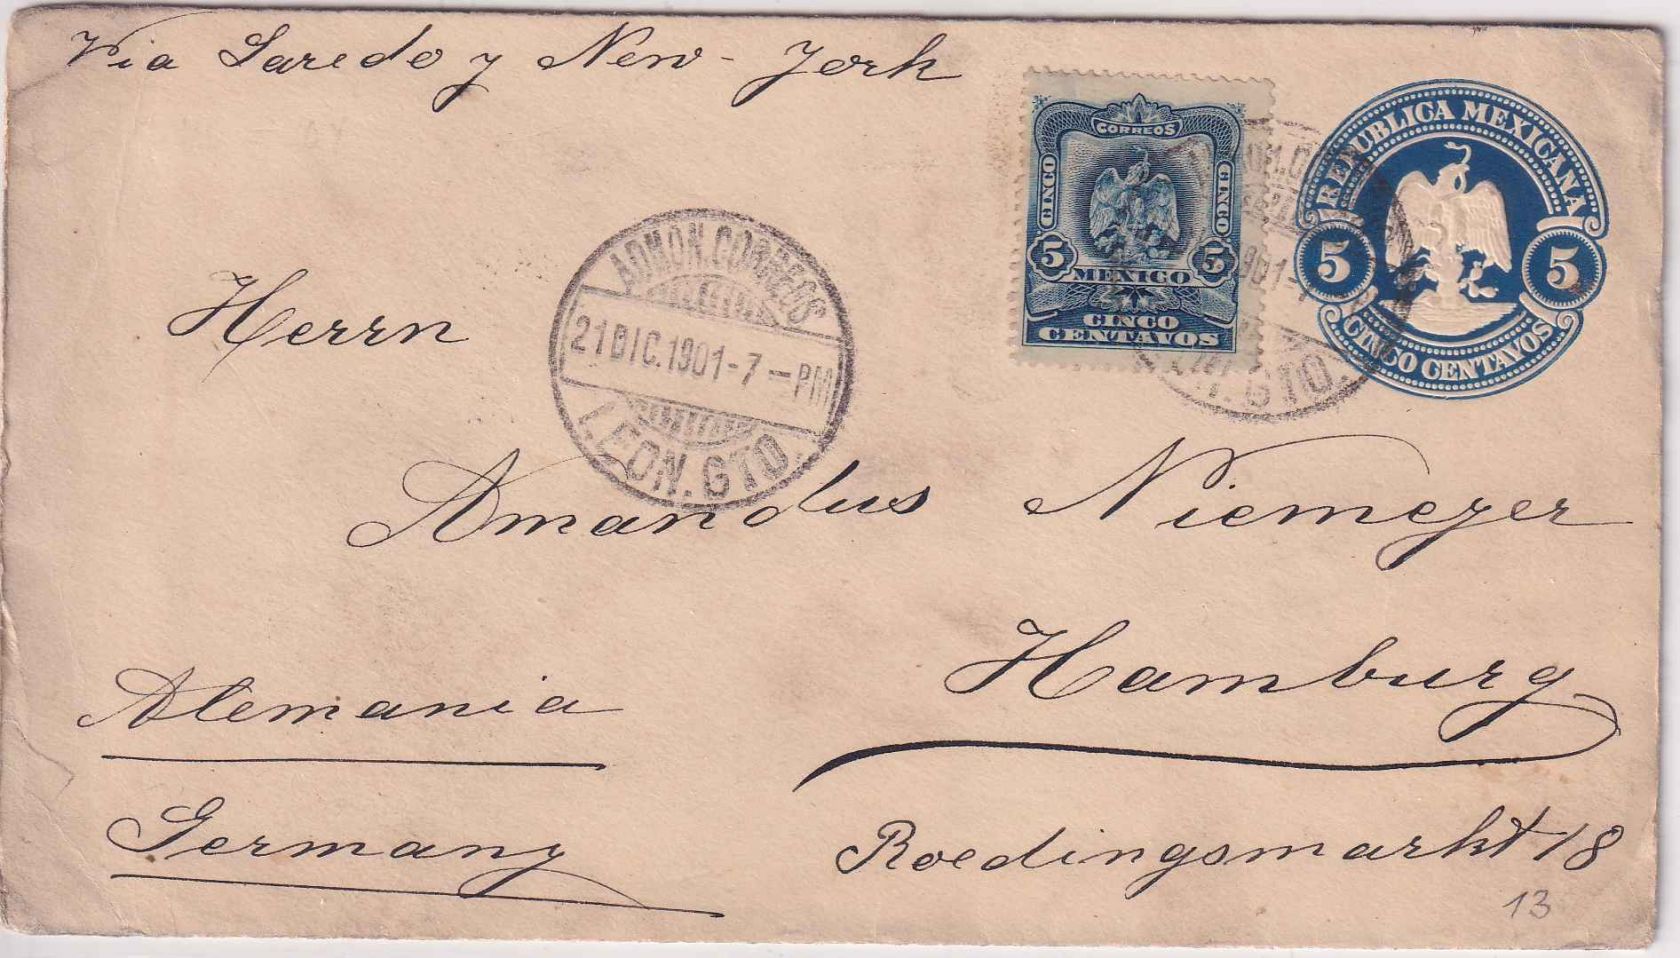 Via Laredo y New-York
CORREOS
CINCO
CINCO
5
5
MEXICO
CINCO
CENTAVOS
REPUBLICA MEXICANA
5
5
CINCO CENTAVOS
ADMON. CORREOS
21 DIC. 1901-7-PM
LEON. GTO.
901-7
GTO.
Herrn
Amandus Niemeyer
Hamburg
Alemania
Germany
Roedingsmarkt 18
13